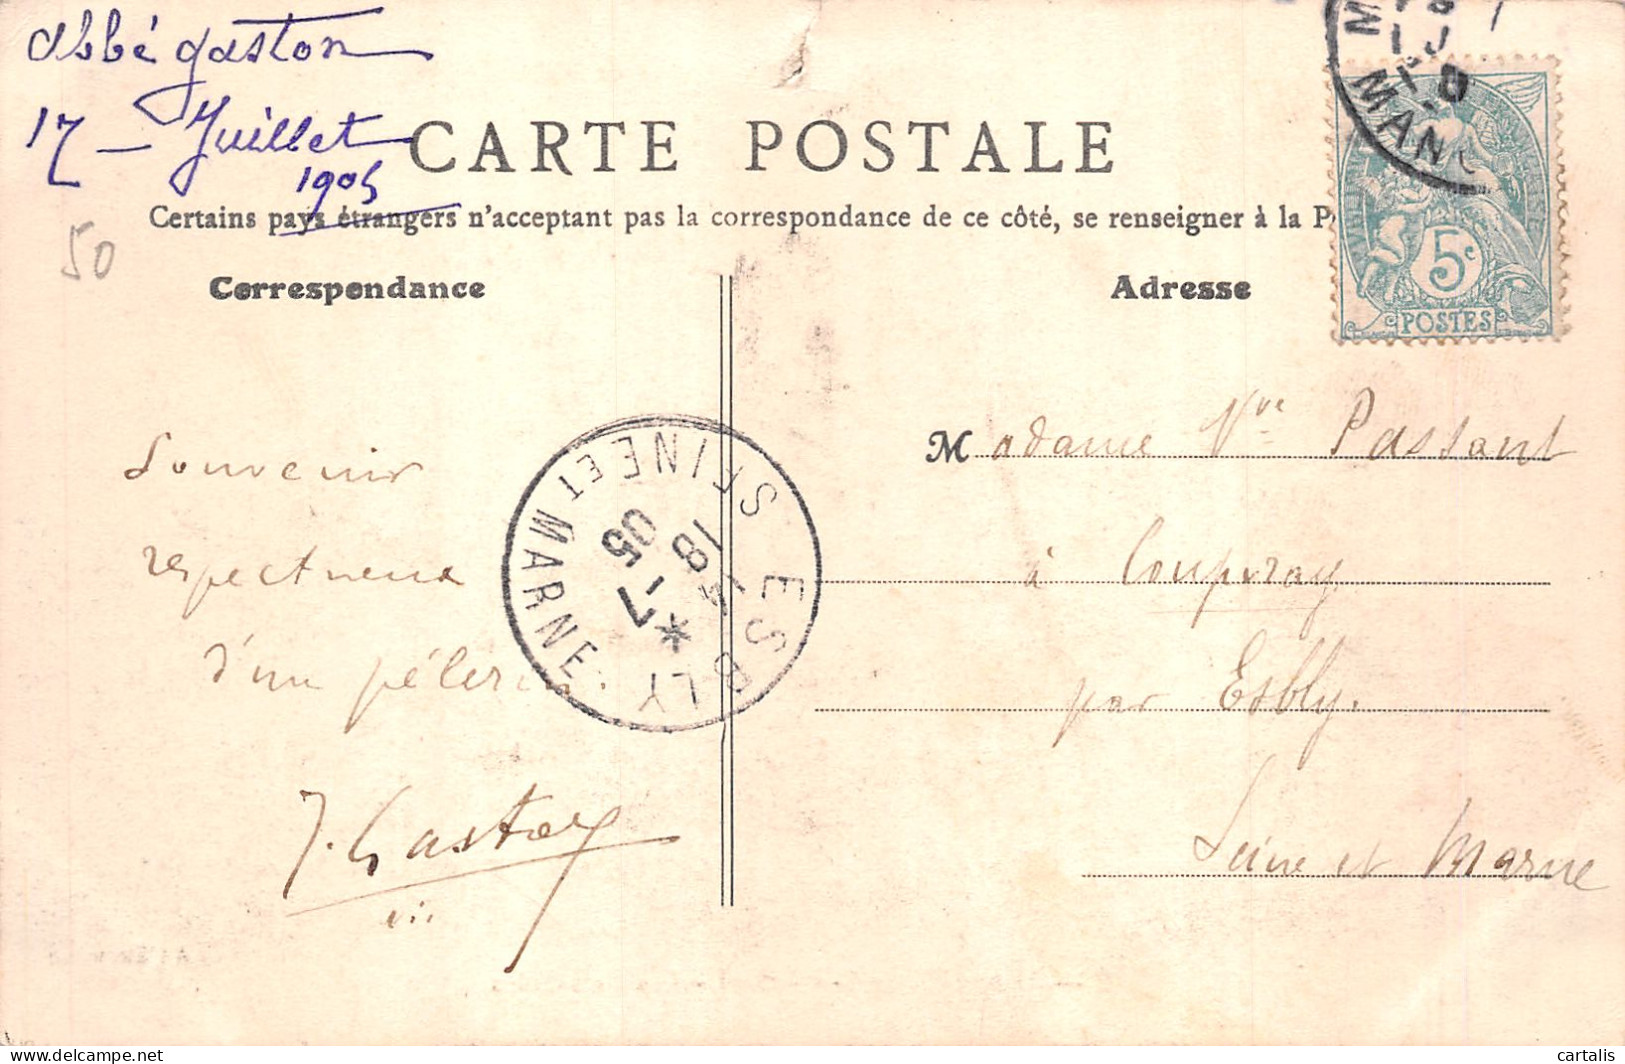 abbé gaston
17 – Juillet
1905
CARTE POSTALE
Certains pays étrangers n'acceptant pas la correspondance de ce côté, se renseigner à la P
50
Correspondance
Adresse
5c
POSTES
MAN
Souvenir
respectueux
d'un pélerin
J. Gaston
Madame Vve Passant
à Coupvray
par Esbly.
Seine et Marne
ESBLY
SEINE ET MARNE
18
-7
05
delcampe.net
cartalis